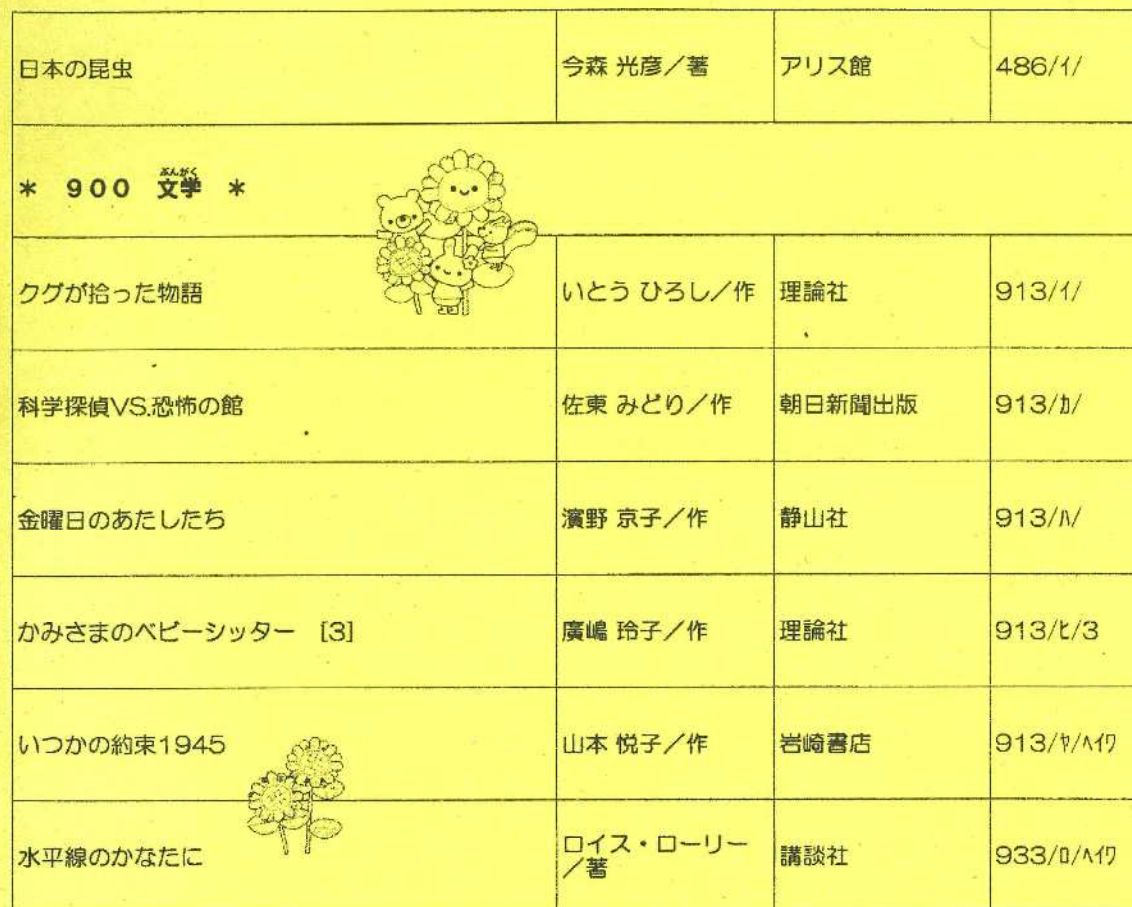 日本の昆虫 今森 光彦／著 アリス館 486/ｲ/
＊ 900 文学 ＊
ぶんがく
クグが拾った物語 いとう ひろし／作 理論社 913/ｲ/
科学探偵VS.恐怖の館 佐東 みどり／作 朝日新聞出版 913/ｶ/
金曜日のあたしたち 濱野 京子／作 静山社 913/ﾊ/
かみさまのベビーシッター [3] 廣嶋 玲子／作 理論社 913/ﾋ/3
いつかの約束1945 山本 悦子／作 岩崎書店 913/ﾔ/ﾍｲﾜ
水平線のかなたに ロイス・ローリー
／著 講談社 933/ﾛ/ﾍｲﾜ